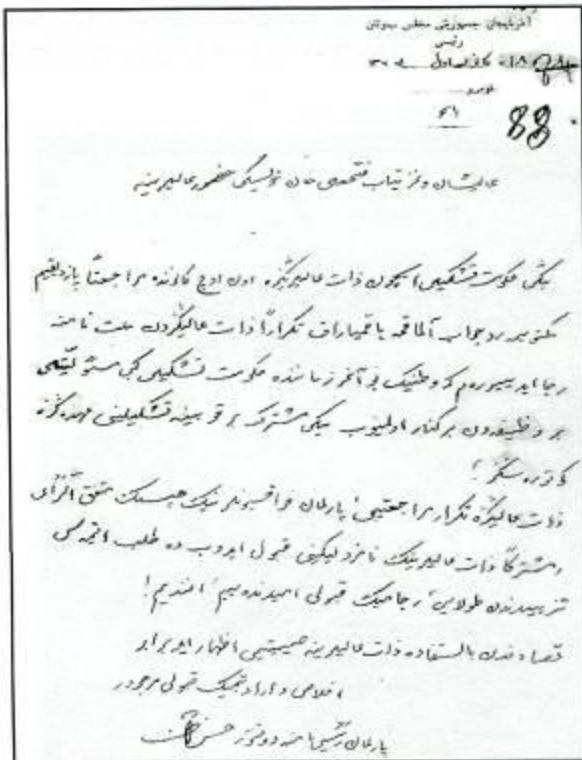 آذربایجان جمهوریتی مجلس مبعوثان
رئیسی
۱۸ کانون اول
نومرو
88
عالیشان و عزتمآب فتحعلی خان خویسکی حضور عالیلرینه
یکی حکومت تشکیلی ایچون ذات عالیلرینزه اون اوچ کانونده مراجعتاً یازدیغیم
مکتوبمه رد جواب آلماقمه باقمیاراق تکراراً ذات عالیکزدن ملت نامنه
رجا ایدییورم که وطنیک بو آخر زماننده حکومت تشکیلی کبی مسئولیتلی
بر وظیفه‌دن برکنار اولمیوب یکی مشترک بر قابینه تشکیلینی عهده‌کزه
کوتوره‌سکز!
ذات عالیکزه تکرار مراجعتیمی پارلمان فراقسیونلرینک هپسنک متفق الرأی
مشترکاً ذات عالیلرینک نامزدلیکینی قبول ایدوب ده طلب ایتمه‌سی
طولایی رجامیک قبولی امیدنده‌یم افندیم!
بالاستفاده ذات عالیلرینه صمیمی اظهار ایدر
اخلاص و ارادتمک قبولی مرجودر
پارلمان رئیسی نامنه دوقتور حسن